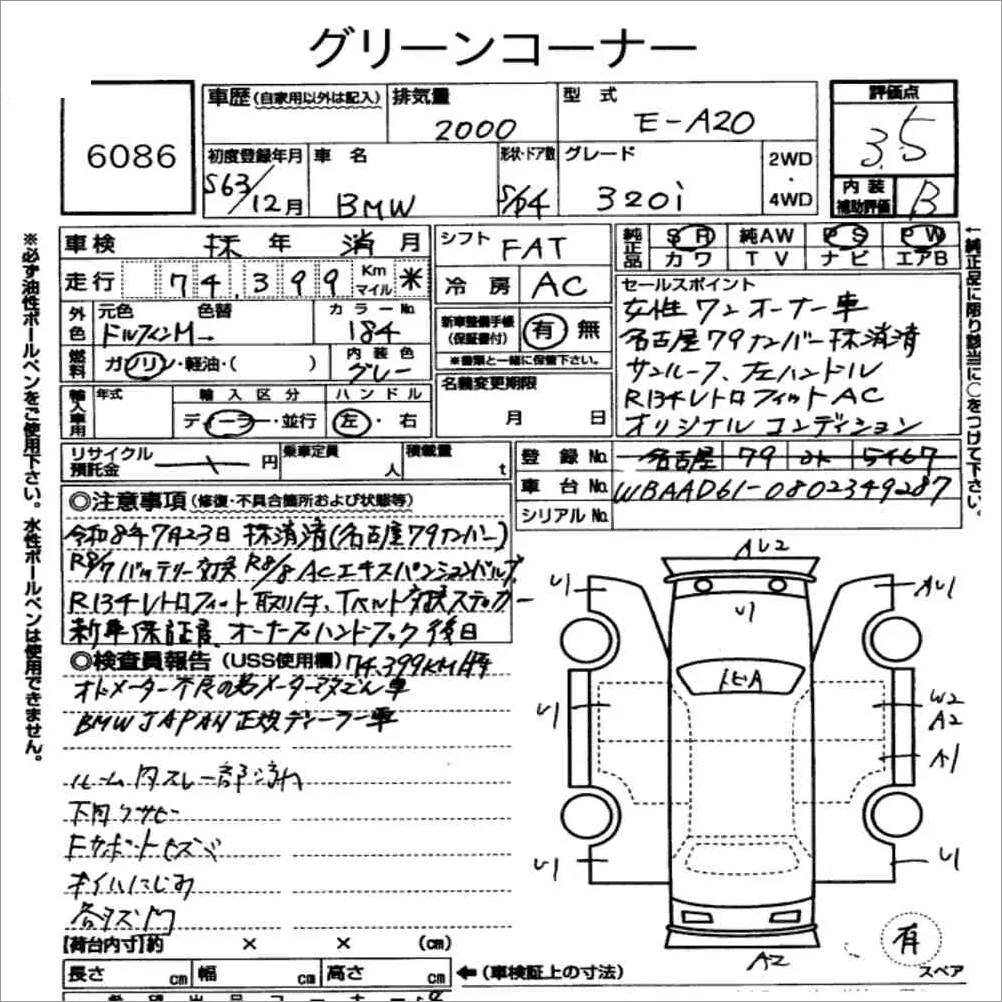 グリーンコーナー
6086
車歴(自家用以外は記入)
排気量
2000
型 式
E-A20
評価点
3.5
初度登録年月
S63/12月
車 名
BMW
形状・ドア数
S/4
グレード
320i
2WD
・
4WD
内 装
補助評価
B
車検 抹 年 消 月
シフト FAT
純正品
SR 純AW PS PW
カワ TV ナビ エアB
走行 74,399 Km マイル
冷房 AC
セールスポイント
女性ワンオーナー車
名古屋79ナンバー抹消済
サンルーフ、左ハンドル
R134レトロフィットAC
オリジナルコンディション
外色
元色 色替
ドルフィンM→
カラーNo.
184
新車整備手帳
(保証書付)
有 無
※書類と一緒に保管下さい。
燃料
ガソリン・軽油・( )
内装色
グレー
名義変更期限
月 日
輸入車用
年式
輸入区分
ディーラー・並行
ハンドル
左・右
リサイクル
預託金
円
乗車定員
人
積載量
t
登録No. 名古屋 79 5467
車台No. WBAAD61-0802349287
シリアルNo.
◎注意事項(修復・不具合箇所および状態等)
令和8年7月23日 抹消済(名古屋79ナンバー)
R8/7バッテリー交換 R8/8 ACエキスパンションバルブ
R134レトロフィット取り付、Tベルト交換ステッカー
新車保証書、オーナーズハンドブック後日
◎検査員報告(USS使用欄) 74,399KM
BMW JAPAN 正規ディーラー車
下回りサビ
オイルにじみ
【荷台内寸】約 × × (cm)
長さ cm 幅 cm 高さ cm
←(車検証上の寸法)
AU2
U1
AU1
U1
U1
W2
A2
A1
U1
U1
A2
有
スペア
※必ず油性ボールペンをご使用下さい。水性ボールペンは使用できません。
↑純正品に限り該当に○をつけて下さい。